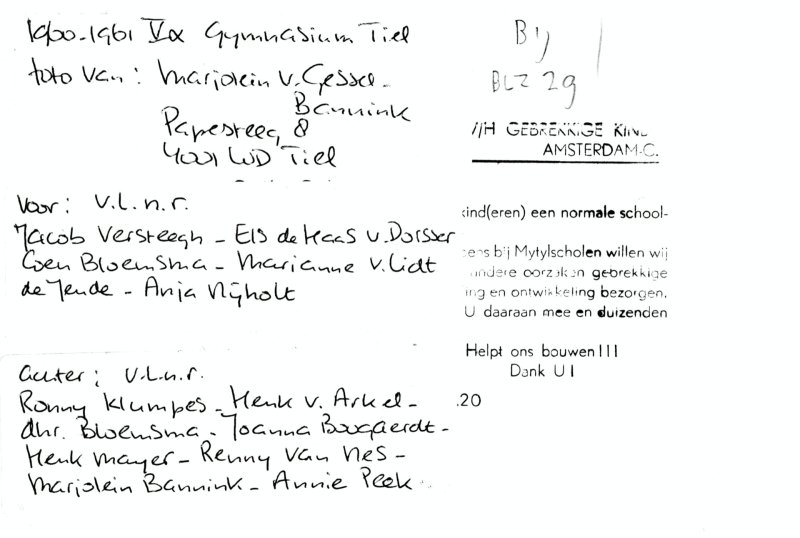 1960-1961 Vα Gymnasium Tiel
foto van: Marjolein v. Gessel-
Bannink
Papesteeg 8
4001 WD Tiel
Voor: v.l.n.r.
Jacob Versteegh - Els de Haas v. Dorsser
Coen Bloemsma - Marianne v. Lidt
de Jeude - Anja Nijholt
achter: v.l.n.r.
Ronny Klumpes - Henk v. Arkel -
dhr. Bloemsma - Joanna Bouquerdt -
Henk Mayer - Renny van Nes -
Marjolein Bannink - Annie Peek
Bij
BLZ 29
GEBREKKIGE KIN
AMSTERDAM-C.
kind(eren) een normale school-
bij Mytylscholen willen wij
andere oorzaken gebrekkige
ing en ontwikkeling bezorgen.
U daaraan mee en duizenden
Helpt ons bouwen!!!
Dank U!
.20